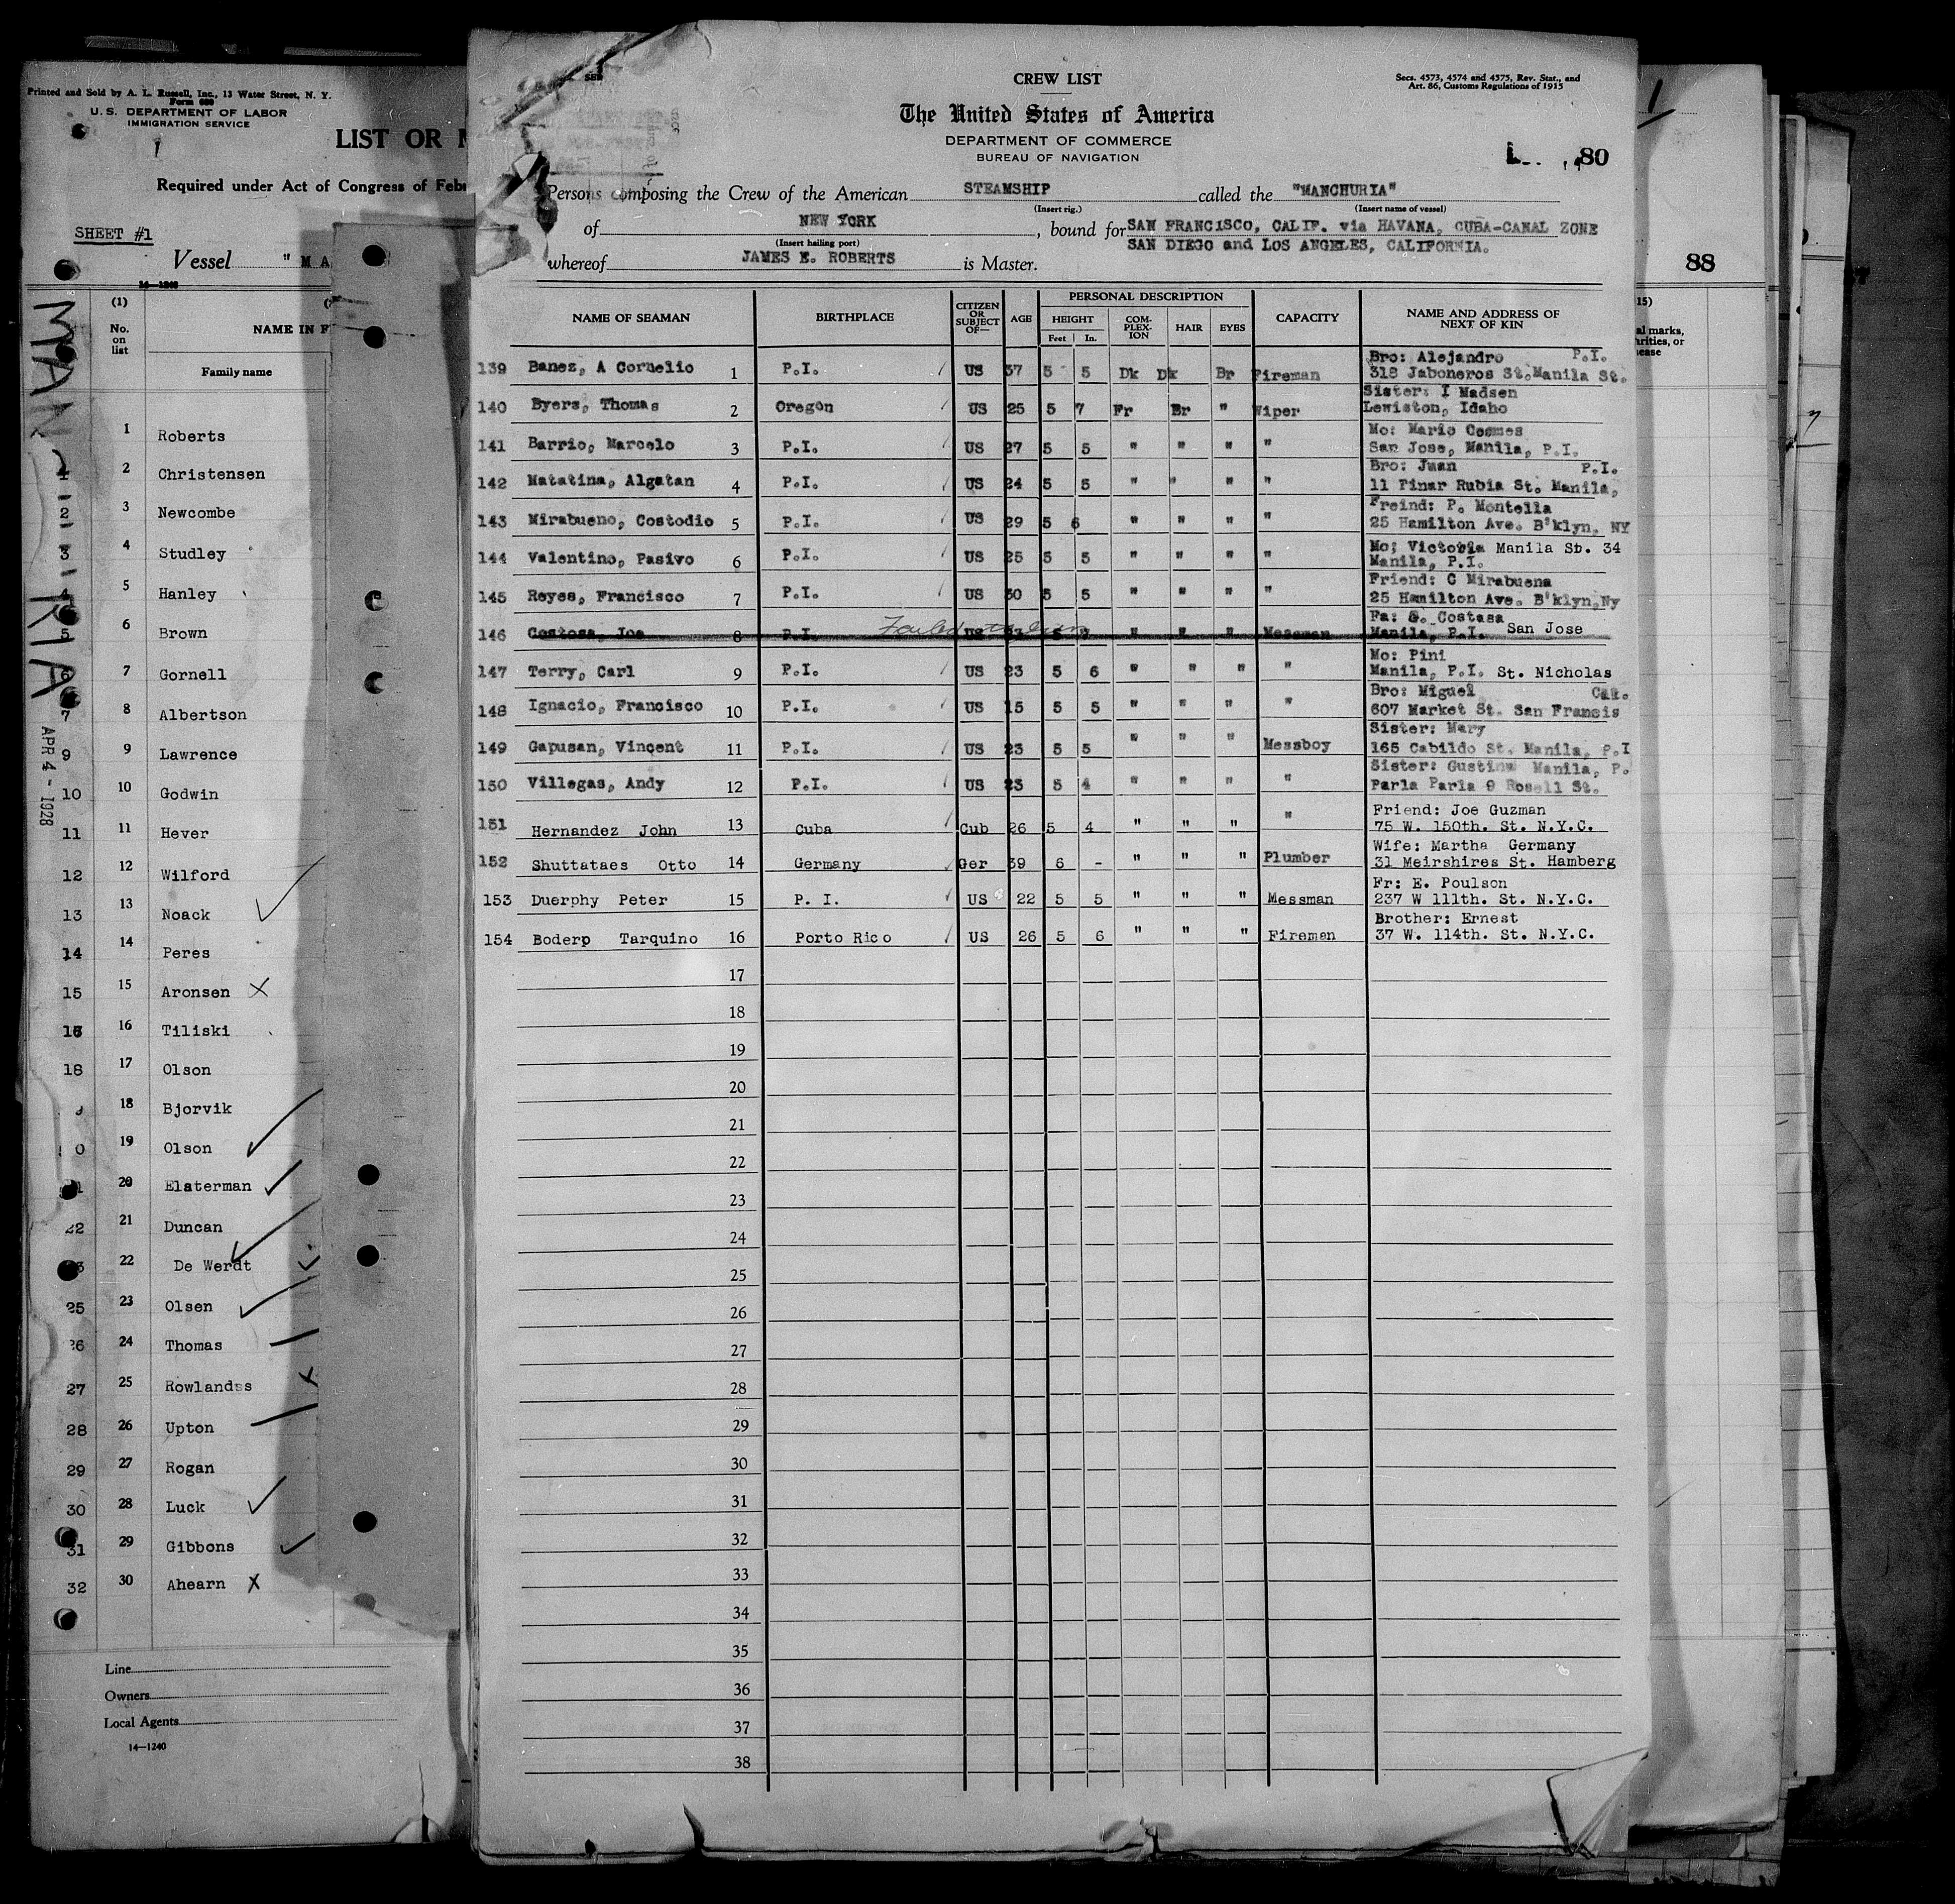 Printed and Sold by A. L. Russell, Inc., 13 Water Street, N. Y.
Form 680
U. S. DEPARTMENT OF LABOR
IMMIGRATION SERVICE
LIST OR M
Required under Act of Congress of Feb
SHEET #1
Vessel " M A
14—1240
(1)
No. on list
NAME IN F
Family name
1 Roberts
2 Christensen
3 Newcombe
4 Studley
5 Hanley
6 Brown
7 Gornell
8 Albertson
9 Lawrence
10 Godwin
11 Hever
12 Wilford
13 Noack
14 Peres
15 Aronsen X
16 Tiliski
17 Olson
18 Bjorvik
19 Olson
20 Elaterman
21 Duncan
22 De Werdt
23 Olsen
24 Thomas
25 Rowlandss
26 Upton
27 Rogan
28 Luck
29 Gibbons
30 Ahearn X
Line
Owners
Local Agents
14—1240
APR 4 - 1928
CREW LIST
Secs. 4573, 4574 and 4575, Rev. Stat., and
Art. 86, Customs Regulations of 1915
The United States of America
DEPARTMENT OF COMMERCE
BUREAU OF NAVIGATION
80
Persons composing the Crew of the American STEAMSHIP called the "MANCHURIA"
(Insert rig.) (Insert name of vessel)
of NEW YORK, bound for SAN FRANCISCO, CALIF. via HAVANA, CUBA-CANAL ZONE
(Insert hailing port) SAN DIEGO and LOS ANGELES, CALIFORNIA.
whereof JAMES E. ROBERTS is Master.
NAME OF SEAMAN BIRTHPLACE CITIZEN OR SUBJECT OF— AGE PERSONAL DESCRIPTION HEIGHT Feet In. COMPLEXION HAIR EYES CAPACITY NAME AND ADDRESS OF NEXT OF KIN
Bro: Alejandro P.I.
139 Banez, A Cornelio 1 P.I. US 37 5 5 Dk Dk Br Fireman 318 Jaboneros St. Manila St.
Sister: I Madsen
140 Byers, Thomas 2 Oregon US 25 5 7 Fr Br " Wiper Lewiston, Idaho
Mo: Mario Cosmes
141 Barrio, Marcelo 3 P.I. US 27 5 5 " " " " San Jose, Manila, P.I.
Bro: Juan P.I.
142 Matatina, Algatan 4 P.I. US 24 5 5 " " " " 11 Pinar Rubia St. Manila,
Freind: P. Montella
143 Mirabueno, Costodio 5 P.I. US 29 5 6 " " " " 25 Hamilton Ave. B'klyn, NY
Mo; Victoria Manila St. 34
144 Valentino, Pasivo 6 P.I. US 25 5 5 " " " " Manila, P.I.
Friend: C Mirabuena
145 Reyes, Francisco 7 P.I. US 30 5 5 " " " " 25 Hamilton Ave. B'klyn, Ny
Fa: G. Costasa
146 Costosa, Joe 8 P.I. Failed to join US " " " Messman Manila, P.I. San Jose
Mo: Pini
147 Terry, Carl 9 P.I. US 23 5 6 " " " " Manila, P.I. St. Nicholas
Bro: Miguel Cal.
148 Ignacio, Francisco 10 P.I. US 15 5 5 " " " " 607 Market St. San Francis
Sister: Mary
149 Gapusan, Vincent 11 P.I. US 23 5 5 " " " Messboy 165 Cabildo St. Manila, P.I
Sister: Gustina Manila, P.
150 Villegas, Andy 12 P.I. US 23 5 4 " " " " Parla Parla 9 Rosell St.
Friend: Joe Guzman
151 Hernandez John 13 Cuba Cub 26 5 4 " " " " 75 W. 150th. St. N.Y.C.
Wife: Martha Germany
152 Shuttataes Otto 14 Germany Ger 39 6 - " " " Plumber 31 Meirshires St. Hamberg
Fr: E. Poulson
153 Duerphy Peter 15 P. I. US 22 5 5 " " " Messman 237 W 111th. St. N.Y.C.
Brother: Ernest
154 Boderp Tarquino 16 Porto Rico US 26 5 6 " " " Fireman 37 W. 114th. St. N.Y.C.
17
18
19
20
21
22
23
24
25
26
27
28
29
30
31
32
33
34
35
36
37
38
88
15)
al marks,
arities, or
ease